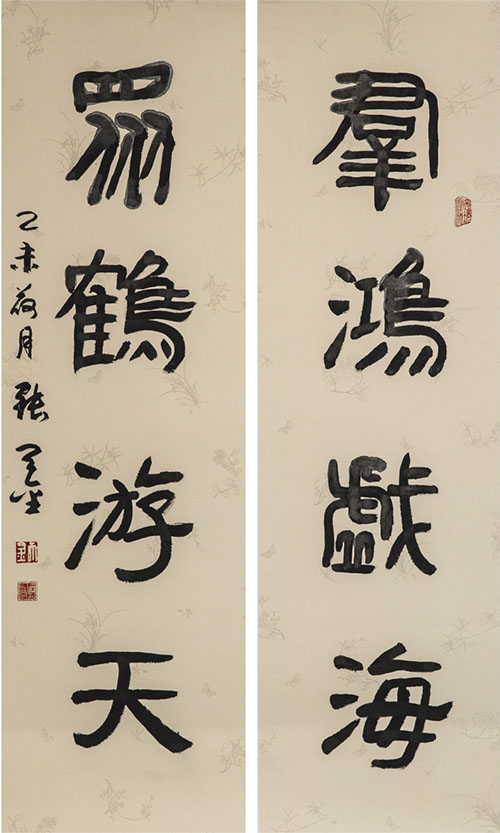 羣鴻戱海
眾鶴游天
乙未荷月 張